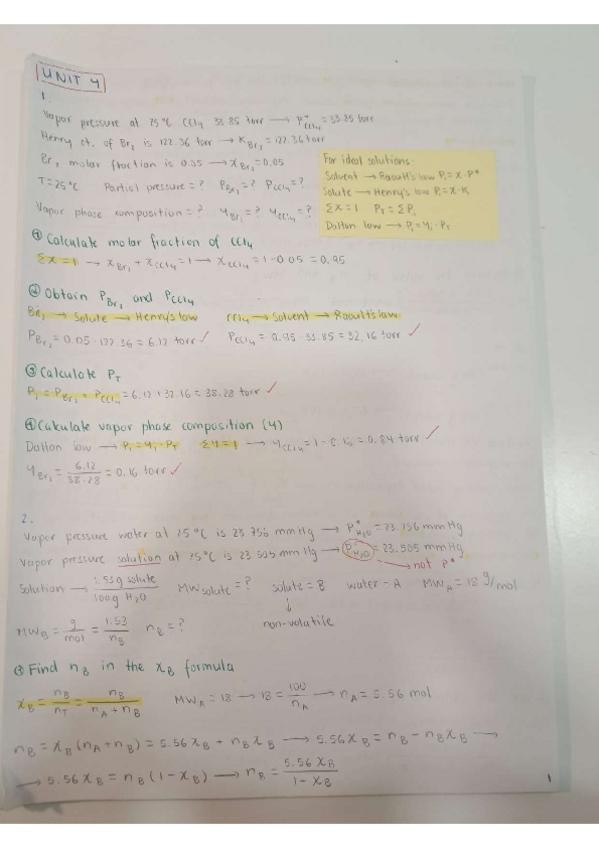 UNIT 4
1.
Vapor pressure at 25°C CCl4 33.85 torr → P*CCl4 = 33.85 torr
Henry ct. of Br2 is 122.36 torr → KBr2 = 122.36 torr
Br2 molar fraction is 0.05 → XBr2 = 0.05
T = 25°C Partial pressure = ? PBr2 = ? PCCl4 = ?
Vapor phase composition = ? YBr2 = ? YCCl4 = ?
For ideal solutions:
Solvent → Raoult's law Pi = X · P*
Solute → Henry's law Pi = X · K
Σx = 1 PT = ΣPi
Dalton low → Pi = Yi · PT
① Calculate molar fraction of CCl4
Σx = 1 → XBr2 + XCCl4 = 1 → XCCl4 = 1 - 0.05 = 0.95
② Obtain PBr2 and PCCl4
Br2 → Solute → Henry's law CCl4 → Solvent → Raoult's law
PBr2 = 0.05 · 122.36 = 6.12 torr ✓ PCCl4 = 0.95 · 33.85 = 32.16 torr ✓
③ Calculate PT
PT = PBr2 + PCCl4 = 6.12 + 32.16 = 38.28 torr ✓
④ Calculate vapor phase composition (Y)
Dalton low → Pi = Yi · PT ΣY = 1 → YCCl4 = 1 - 0.16 = 0.84 torr ✓
YBr2 = 6.12 / 38.28 = 0.16 torr ✓
2.
Vapor pressure water at 25°C is 23.756 mmHg → P*H2O = 23.756 mmHg
Vapor pressure solution at 25°C is 23.505 mmHg → PH2O = 23.505 mmHg
not P*
Solution → 1.53g solute / 100g H2O MWsolute = ? solute = B water = A MWA = 18 g/mol
non-volatile
MWB = g / mol = 1.53 / nB nB = ?
① Find nB in the XB formula
XB = nB / nT = nB / nA + nB MWA = 18 → 18 = 100 / nA → nA = 5.56 mol
nB = XB (nA + nB) = 5.56 XB + nB XB → 5.56 XB = nB - nB XB →
→ 5.56 XB = nB (1 - XB) → nB = 5.56 XB / 1 - XB
1